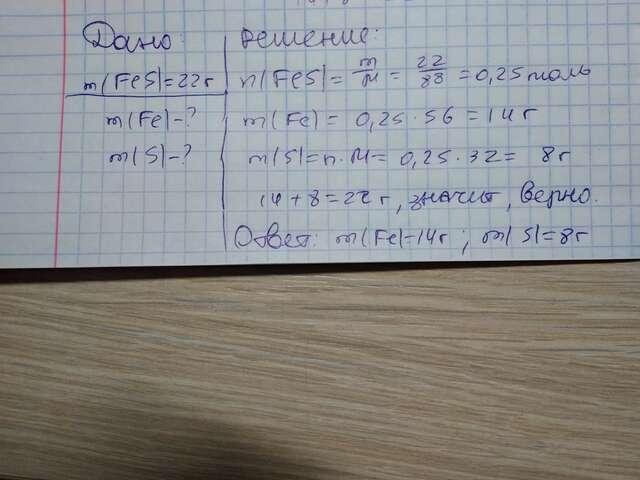 Дано:
m(FeS)=22г
m(Fe)-?
m(S)-?
Решение:
n(FeS)= m/M = 22/88 = 0,25 моль
m(Fe)= 0,25·56=14г
m(S)=n·M= 0,25·32= 8г
14+8=22г, значит, верно.
Ответ: m(Fe)=14г; m(S)=8г